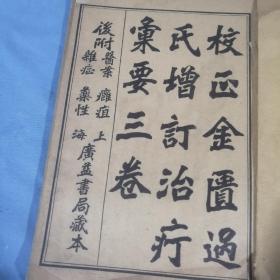 校正金匱過
氏增訂治疔
彙要三卷
後附醫案 癰疽
雜症 藥性
上海廣益書局藏本